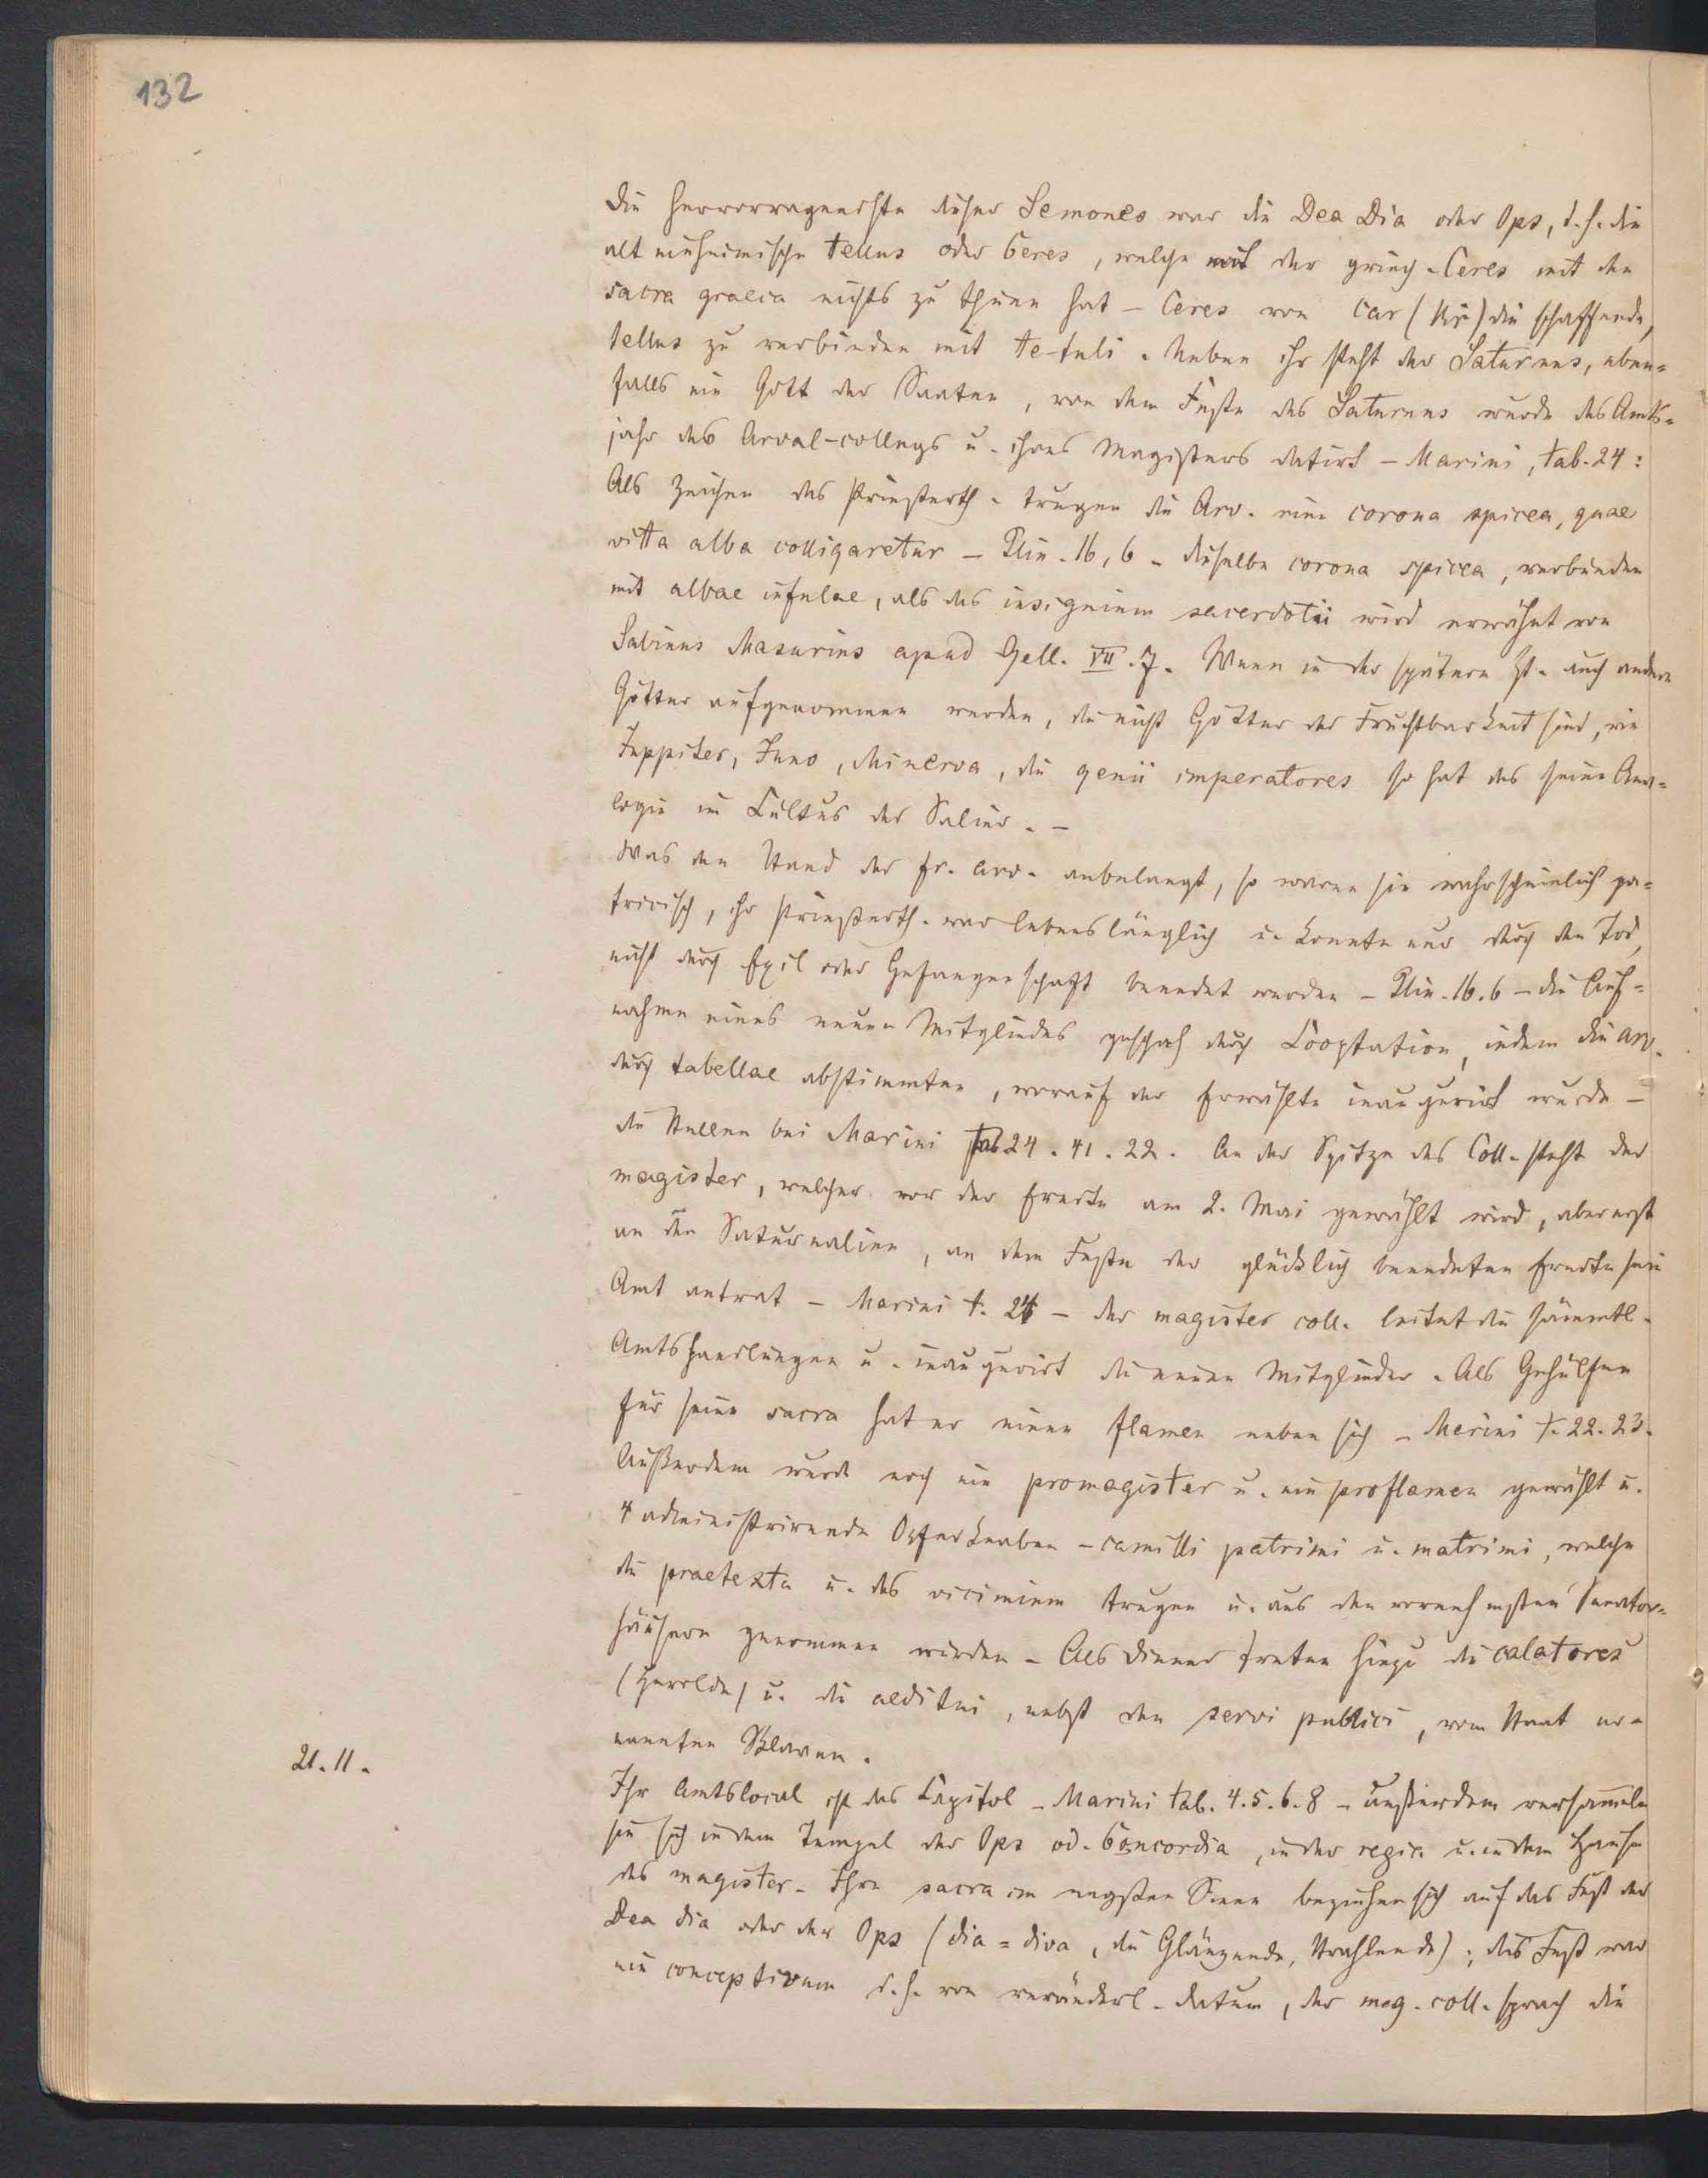 132
Die hervorragendste dieser Semones war die Dea Dia oder Ops, d. h. die
alt einheimische tellus oder Ceres, welche mit der griech. Ceres mit den
sacra graeca nichts zu thuen hat - Ceres von car (kṛ) die schaffende,
tellus zu verbinden mit te-tuli. Neben ihr steht der Saturnus, eben=
falls ein Gott der Saaten, von dem Feste des Saturnus wurde das Amts=
jahr des Arval-collegs u. ihres Magisters datirt - Marini, tab. 24:
Als Zeichen des Priesterth. trugen die Arv. eine corona spicea, quae
vitta alba colligaretur - Plin. 16, 6 - dieselbe corona spicea, verbunden
mit albae infulae, als das insignium sacerdotii wird erwähnt von
Sabinus Masurius apud Gell. VII. 7. Wenn in der spätern Zt. auch andere
Götter aufgenommen werden, die nicht Götter der Fruchtbarkeit sind, wie
Juppiter, Juno, Minerva, die genii imperatores so hat das seine Ana=
logie im Cultus der Salier. -
Was den Stand der fr. arv. anbelangt, so waren sie wahrscheinlich pa=
tricisch, ihr Priesterth. war lebenslänglich u. konnte nur durch den Tod,
nicht durch Exil oder Gefangenschaft beendet werden - Plin. 16. 6 - die Auf=
nahme eines neuen Mitgliedes geschah durch Cooptation, indem die arv.
durch tabellae abstimmten, worauf der Erwählte inaugurirt wurde -
die Stellen bei Marini tab 24. 41. 22. An der Spitze des Coll. steht der
magister, welcher vor der Ernte am 2. Mai gewählt wird, aber erst
an den Saturnalien, an dem Feste der glücklich beendeten Ernte sein
Amt antrat - Marini t. 24 - der magister coll. leitet die sämmtl.
Amtshandlungen u. inaugurirt die neuen Mitglieder. Als Gehülfen
für seine sacra hat er einen flamen neben sich - Marini t. 22. 23.
Außerdem wurde noch ein promagister u. ein proflamen gewählt u.
4 administrirende Opferknaben - camilli patrimi u. matrimi, welche
die praetexta u. das ricinium trugen u. aus den vornehmsten Senator=
häusern genommen wurden - Als Diener treten hinzu die calatores
(Herolde) u. die aeditui, nebst den servi publici, vom Staat er=
nannten Sklaven.
21. 11.
Ihr Amtslocal ist das Capitol - Marini tab. 4. 5. 6. 8 - außerdem versammeln
sie sich in dem Tempel der Ops od. Concordia, in der regia u. in dem Hause
des magister. Ihre sacra im engsten Sinne beziehen sich auf das Fest der
Dea dia oder der Ops (dia = diva, die Glänzende, Strahlende); das Fest war
ein conceptivum d. h. von veränderl. Datum, der mag. coll. sprach die